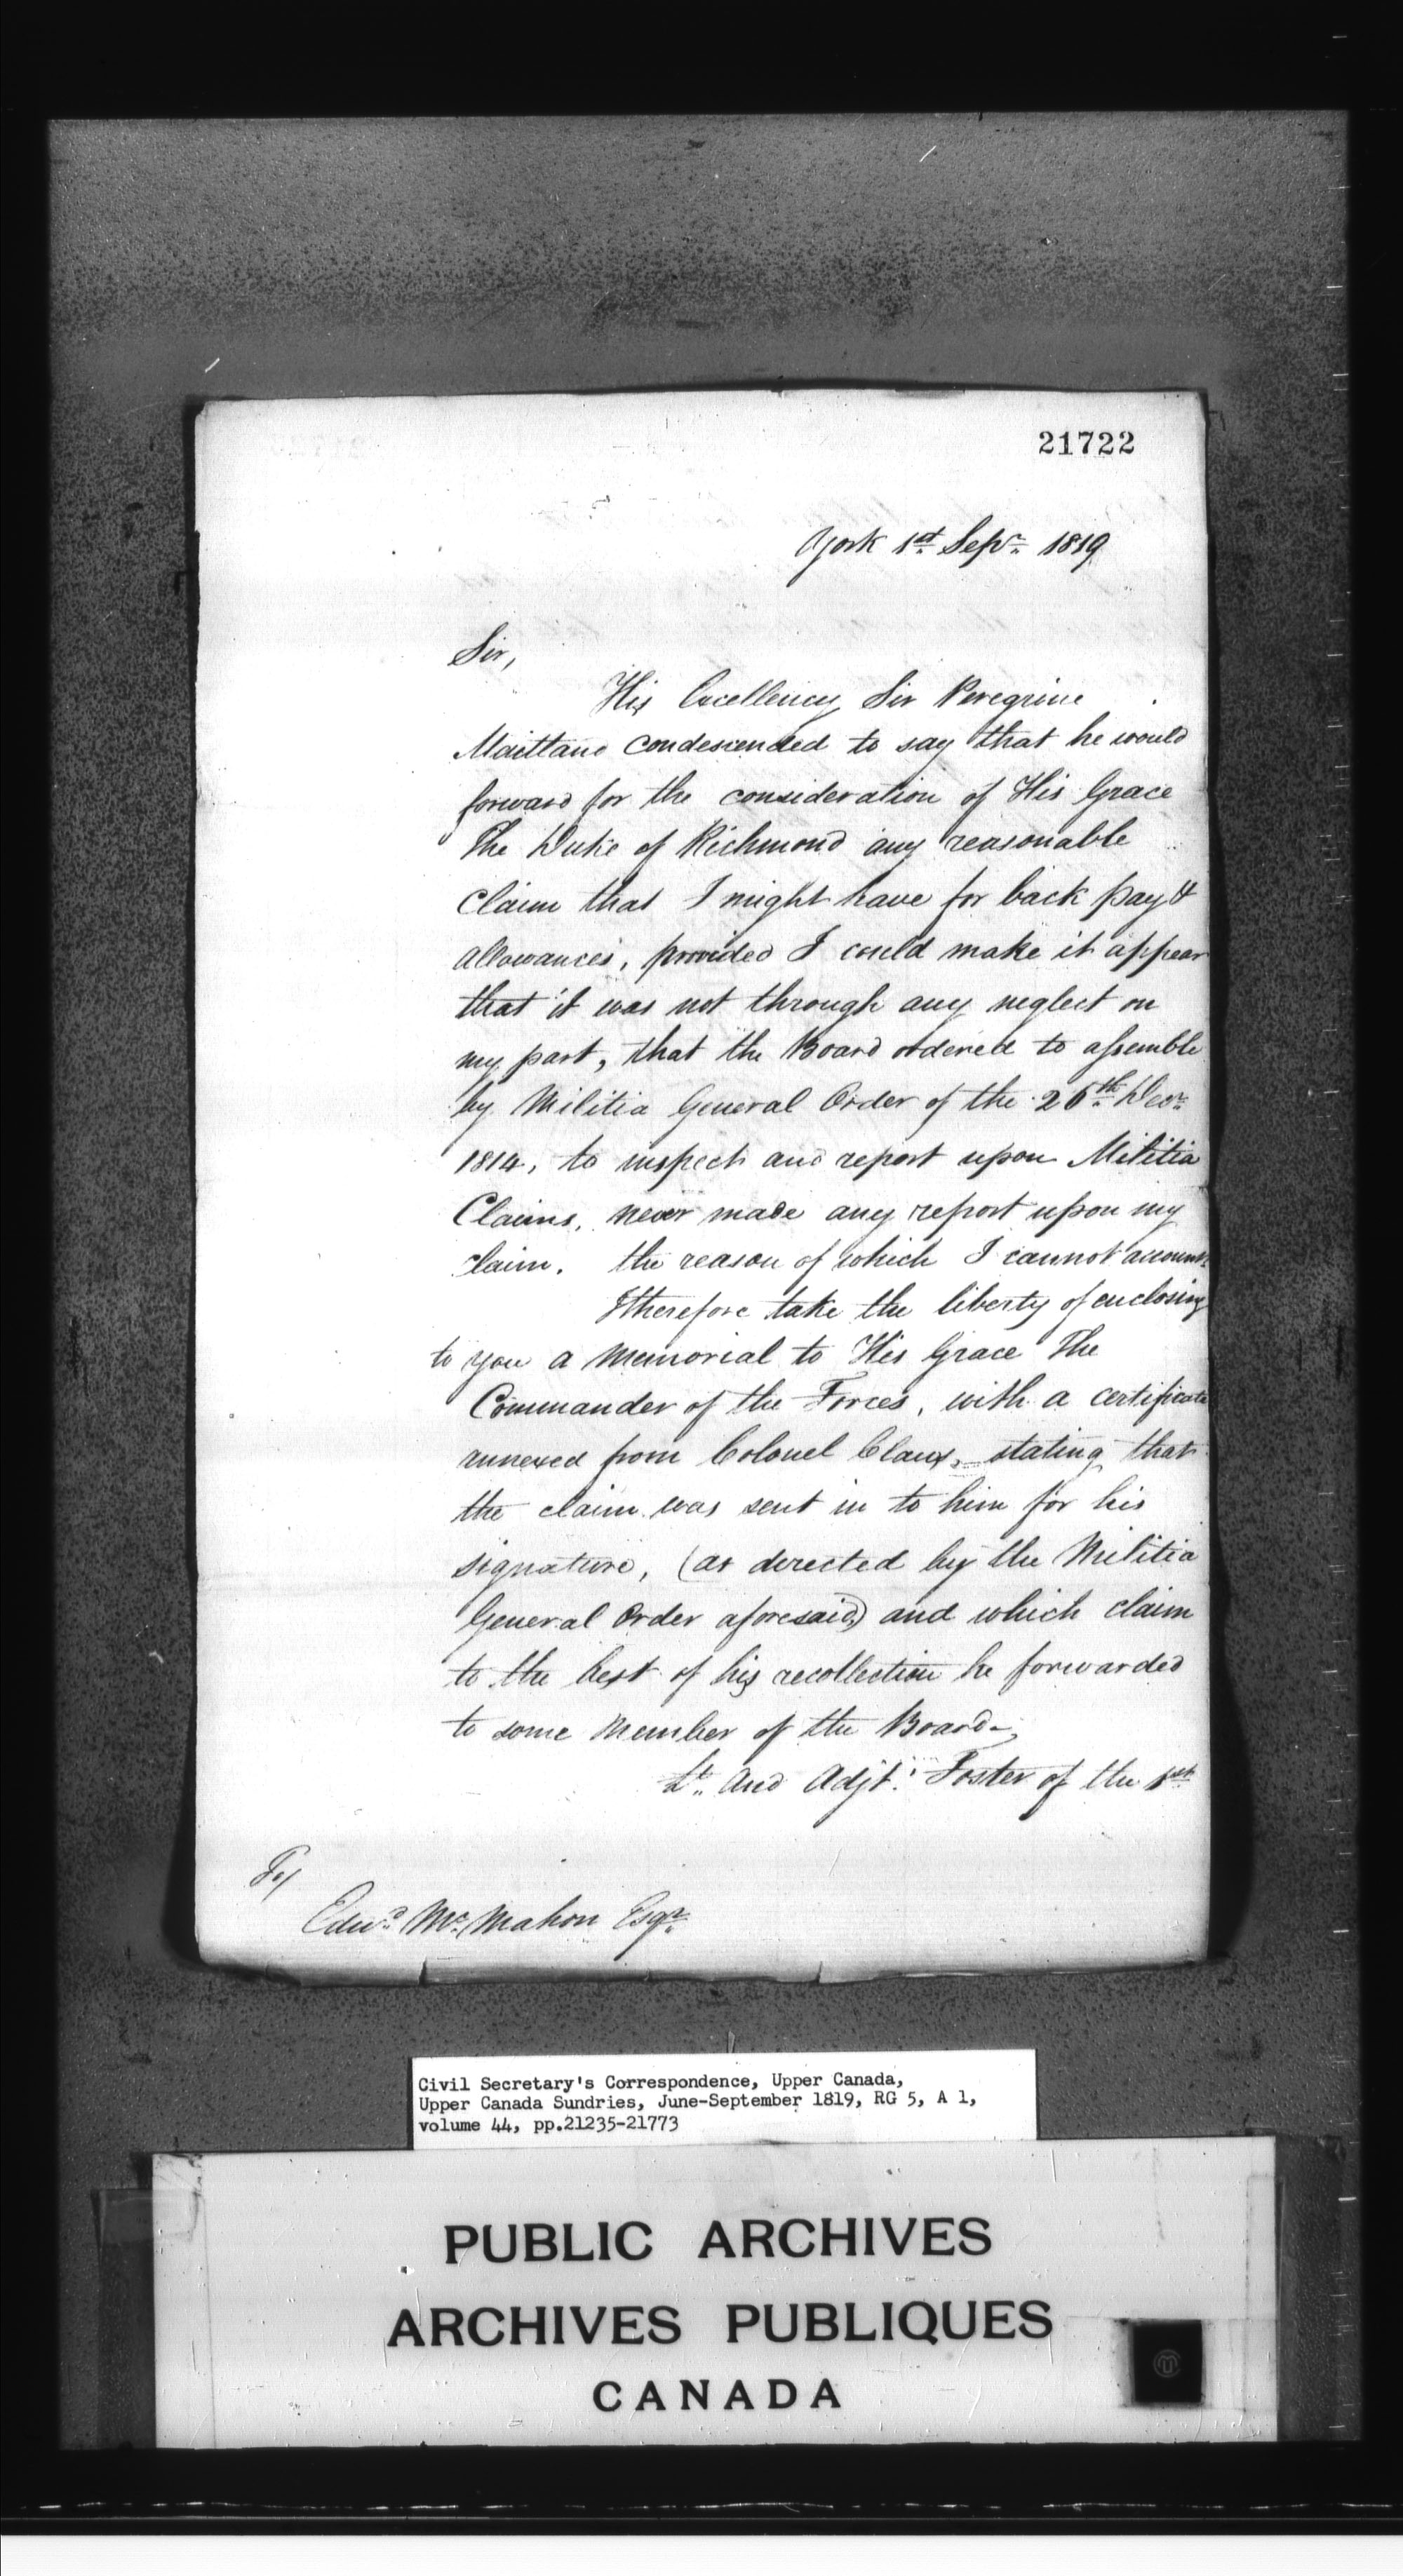 21722
York 1st Sepr. 1819
Sir,
His Excellency Sir Peregrine
Maitland condescended to say that he would
forward for the consideration of His Grace
The Duke of Richmond any reasonable
claim that I might have for back pay &
allowances, provided I could make it appear
that it was not through any neglect on
my part, that the Board ordered to assemble
by Militia General Order of the 26th. Decr.
1814, to inspect and report upon Militia
Claims, never made any report upon my
claim. the reason of which I cannot account.
I therefore take the liberty of enclosing
to you a Memorial to His Grace The
Commander of the Forces, with a certificate
annexed from Colonel Claus, stating that
the claim was sent in to him for his
signature, (as directed by the Militia
General Order aforesaid) and which claim
to the best of his recollection he forwarded
to some Member of the Board.
Lt. and Adjt. Foster of the 1st
To/
Edwd. McMahon Esqr.
Civil Secretary's Correspondence, Upper Canada,
Upper Canada Sundries, June-September 1819, RG 5, A 1,
volume 44, pp.21235-21773
PUBLIC ARCHIVES
ARCHIVES PUBLIQUES
CANADA